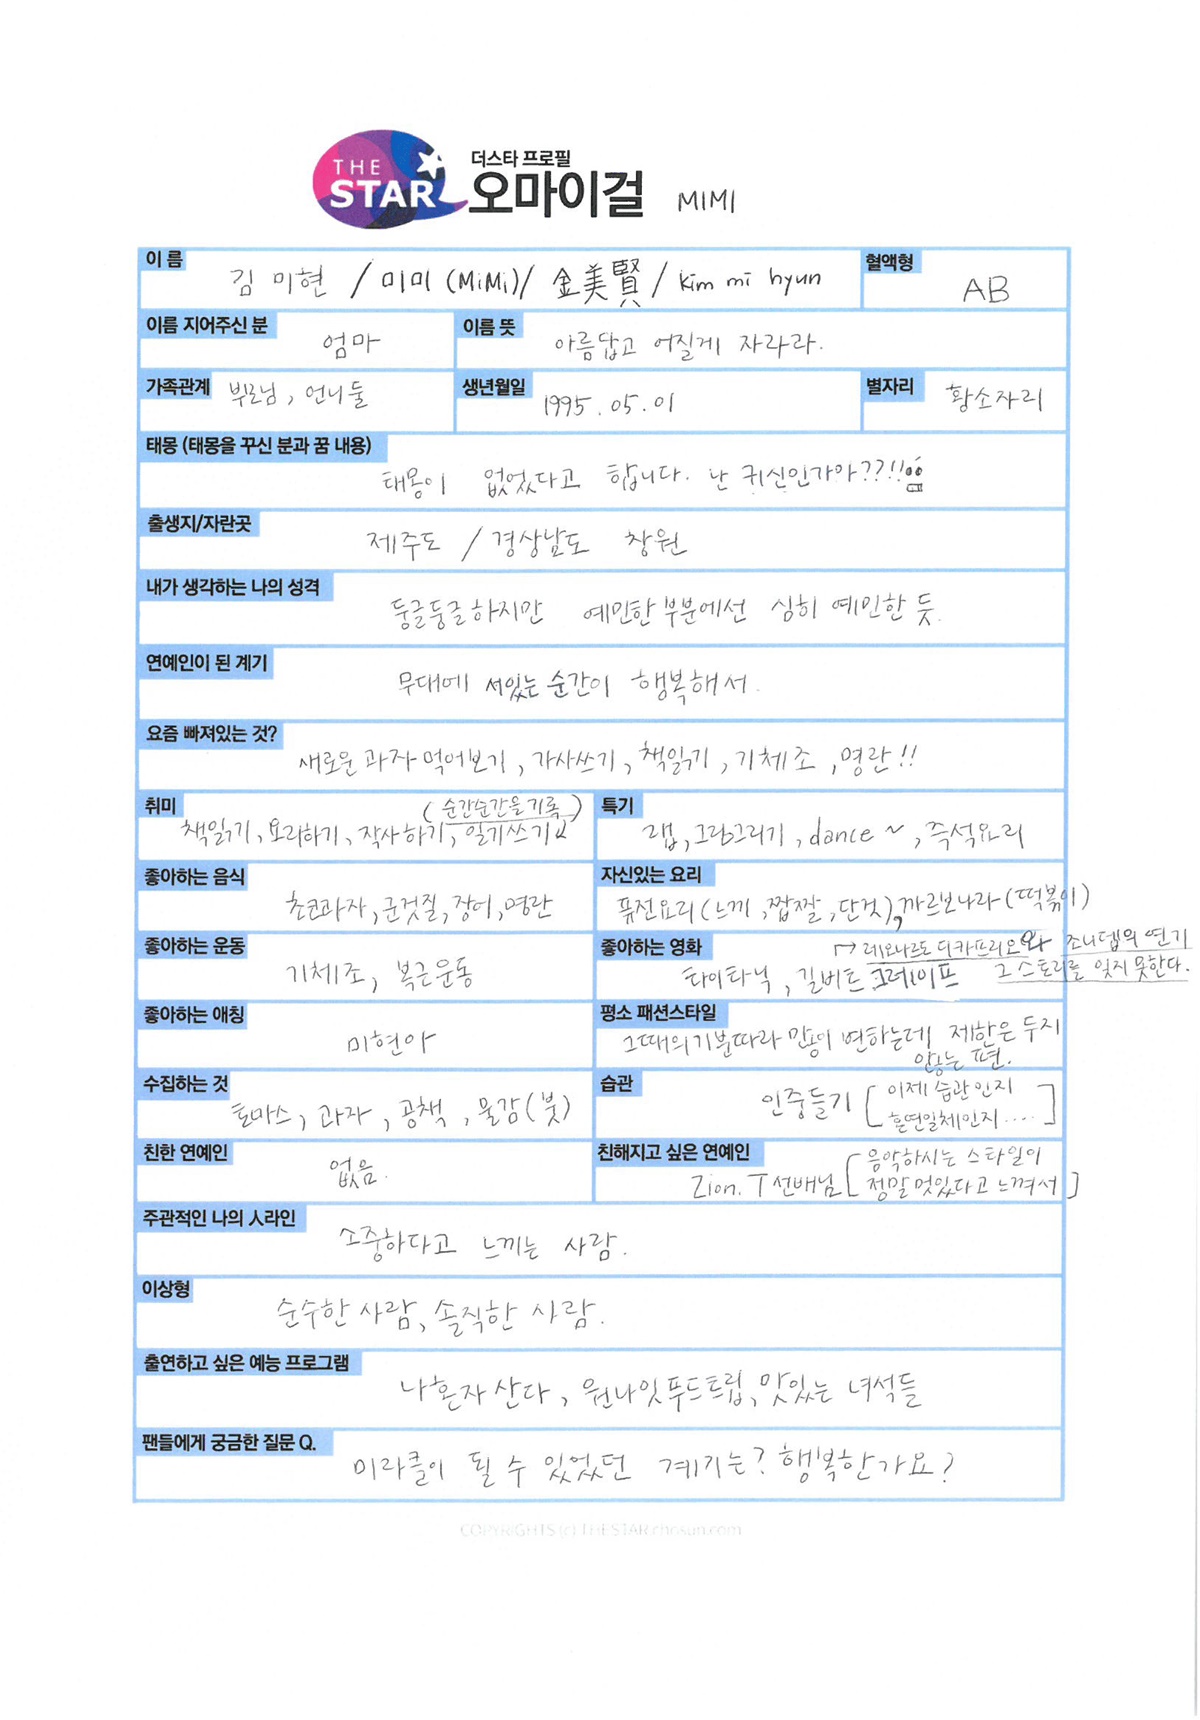 THE
STAR
더스타 프로필
오마이걸 MIMI
이 름
김 미현 / 미미 (MiMi) / 金美賢 / kim mi hyun
혈액형
AB
이름 지어주신 분
엄마
이름 뜻
아름답고 어질게 자라라.
가족관계
부모님, 언니둘
생년월일
1995.05.01
별자리
황소자리
태몽 (태몽을 꾸신 분과 꿈 내용)
태몽이 없었다고 합니다. 난 귀신인가아??!!
출생지/자란곳
제주도 / 경상남도 창원
내가 생각하는 나의 성격
둥글둥글하지만 예민한 부분에선 심히 예민한 듯.
연예인이 된 계기
무대에 서있는 순간이 행복해서.
요즘 빠져있는 것?
새로운 과자 먹어보기, 가사쓰기, 책읽기, 기체조, 명란!!
취미
(순간순간을 기록)
책읽기, 요리하기, 작사하기, 일기쓰기
특기
랩, 그림그리기, dance ~, 즉석요리
좋아하는 음식
초코과자, 군것질, 장어, 명란
자신있는 요리
퓨전요리 (느끼, 짭짤, 단것), 까르보나라 (떡볶이)
좋아하는 운동
기체조, 복근운동
좋아하는 영화
→ 레오나르도 디카프리오와 조니뎁의 연기
타이타닉, 길버트 그레이프 그 스토리를 잊지 못한다.
좋아하는 애칭
미현아
평소 패션스타일
그때의 기분따라 많이 변하는데 제한은 두지
않는 편.
수집하는 것
토마스, 과자, 공책, 물감(붓)
습관
인중들기 [이제 습관인지
혼연일체인지....]
친한 연예인
없음.
친해지고 싶은 연예인
Zion.T 선배님 [음악하시는 스타일이
정말 멋있다고 느껴서]
주관적인 나의 人라인
소중하다고 느끼는 사람.
이상형
순수한 사람, 솔직한 사람.
출연하고 싶은 예능 프로그램
나혼자 산다, 원나잇 푸드트립, 맛있는 녀석들
팬들에게 궁금한 질문 Q.
미라클이 될 수 있었던 계기는? 행복한가요?
COPYRIGHTS (c) THESTAR.chosun.com